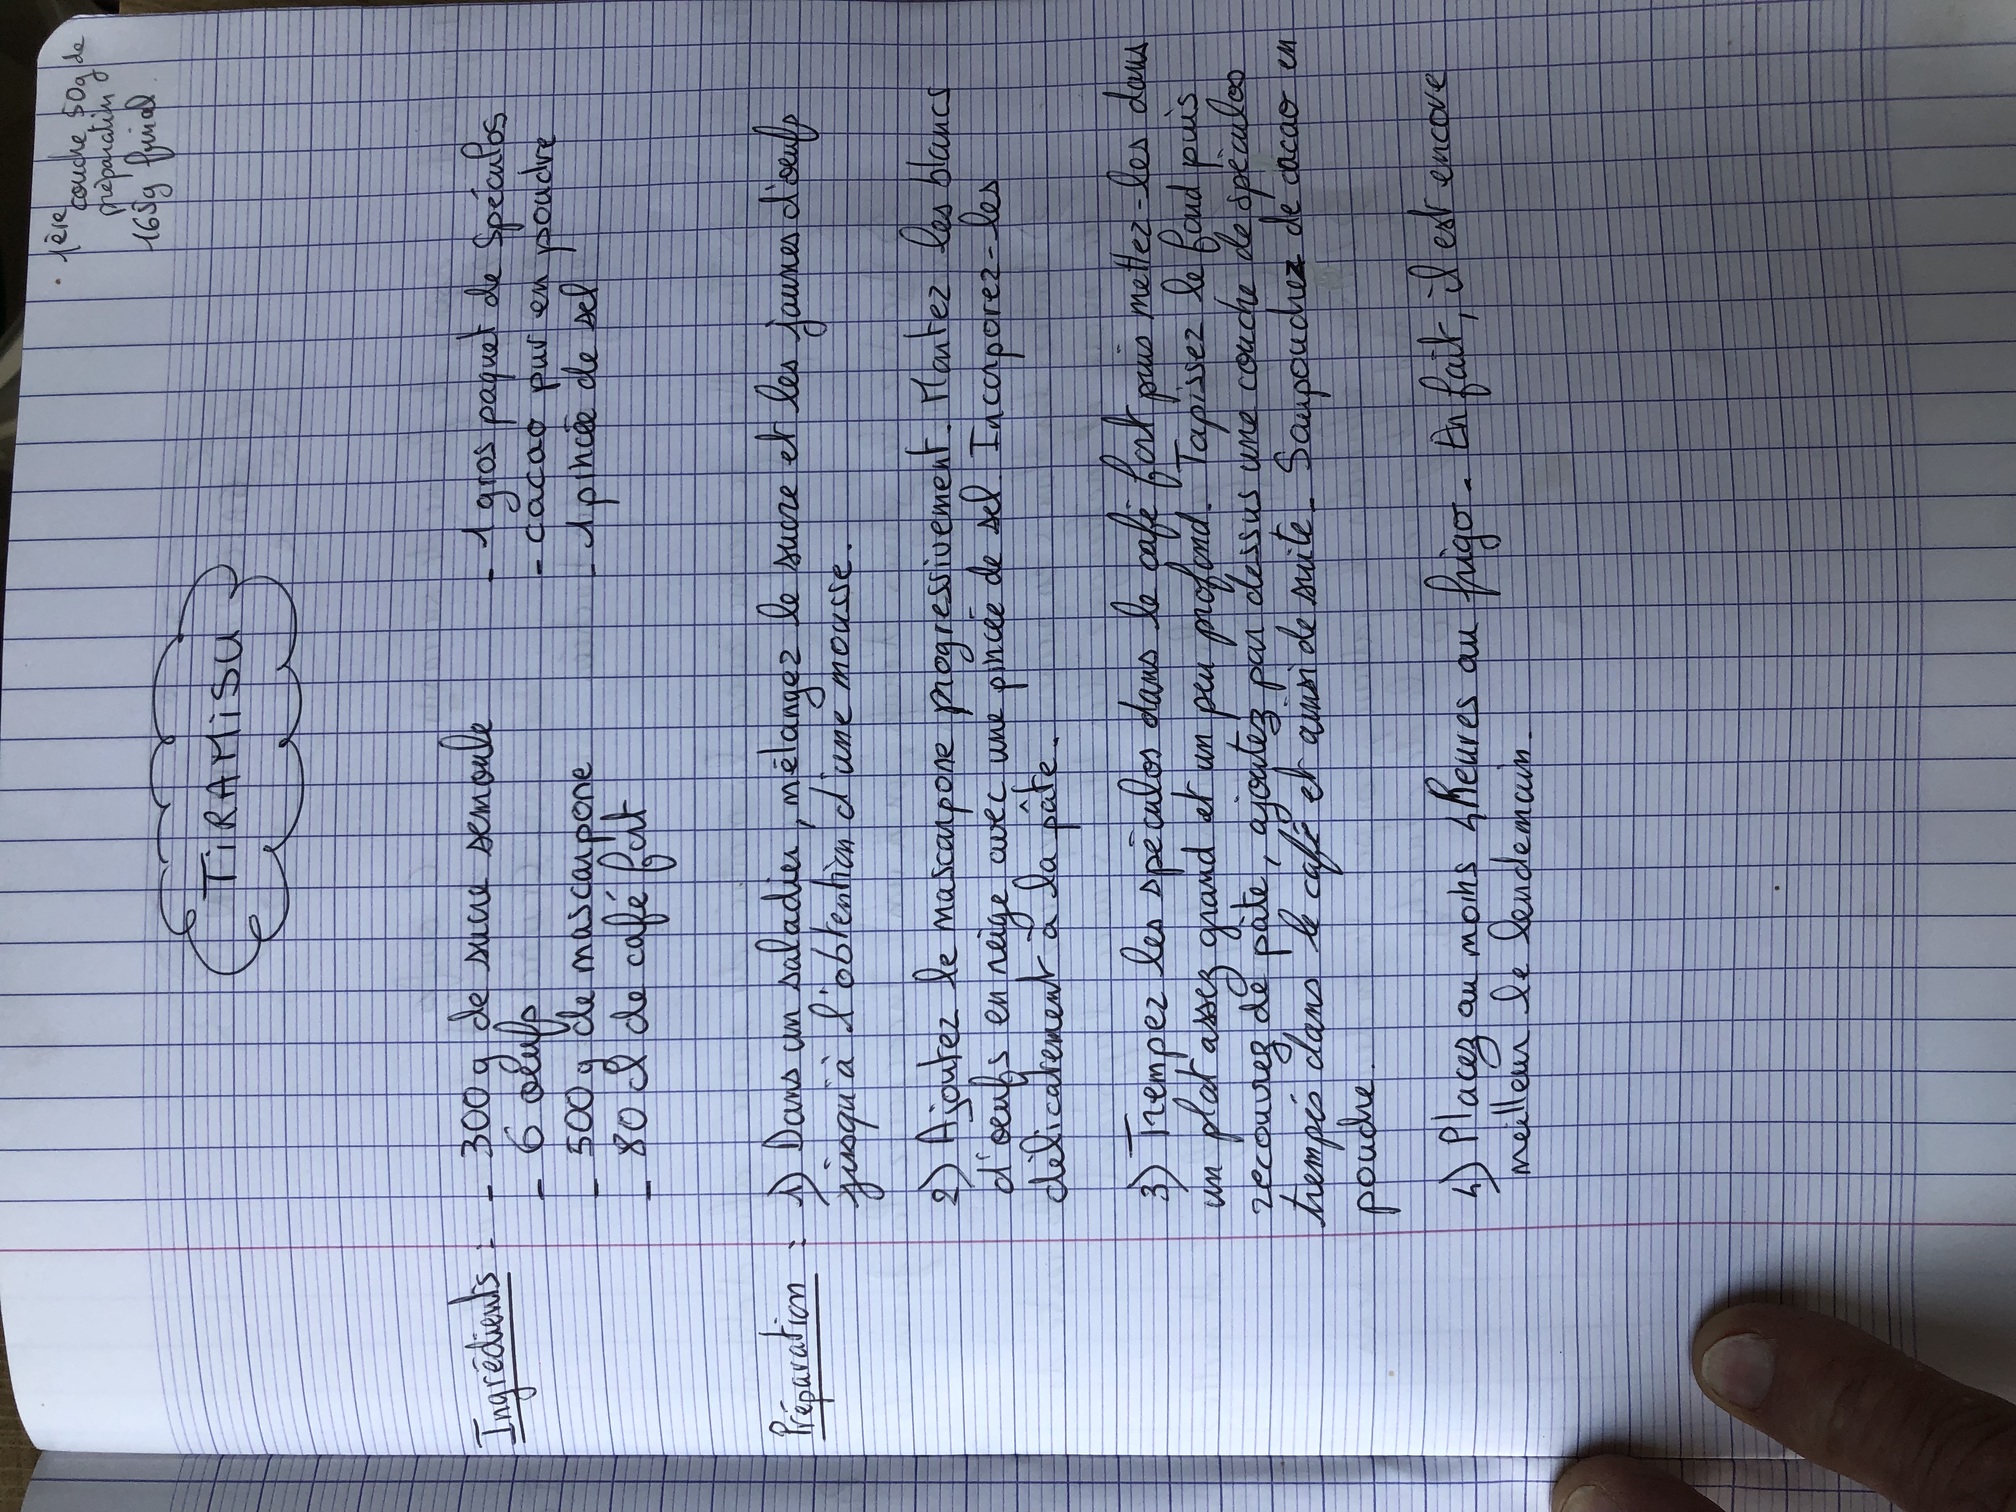 1ère couche 50g de
préparation
165g final
TiRAMiSU
Ingrédients : - 300g de sucre semoule - 1 gros paquet de spéculos
- 6 oeufs - cacao pur en poudre
- 500g de mascarpone - 1 pincée de sel
- 80 cl de café fort
Préparation : 1) Dans un saladier, mélangez le sucre et les jaunes d'oeufs
jusqu'à l'obtention d'une mousse.
2) Ajoutez le mascarpone progressivement. Montez les blancs
d'oeufs en neige avec une pincée de sel. Incorporez-les
délicatement à la pâte.
3) Trempez les spéculos dans le café fort puis mettez-les dans
un plat assez grand et un peu profond. Tapissez le fond puis
recouvrez de pâte, ajoutez par dessus une couche de spéculos
trempés dans le café et ainsi de suite. Saupoudrez de cacao en
poudre.
4) Placez au moins 4 heures au frigo. En fait, il est encore
meilleur le lendemain.